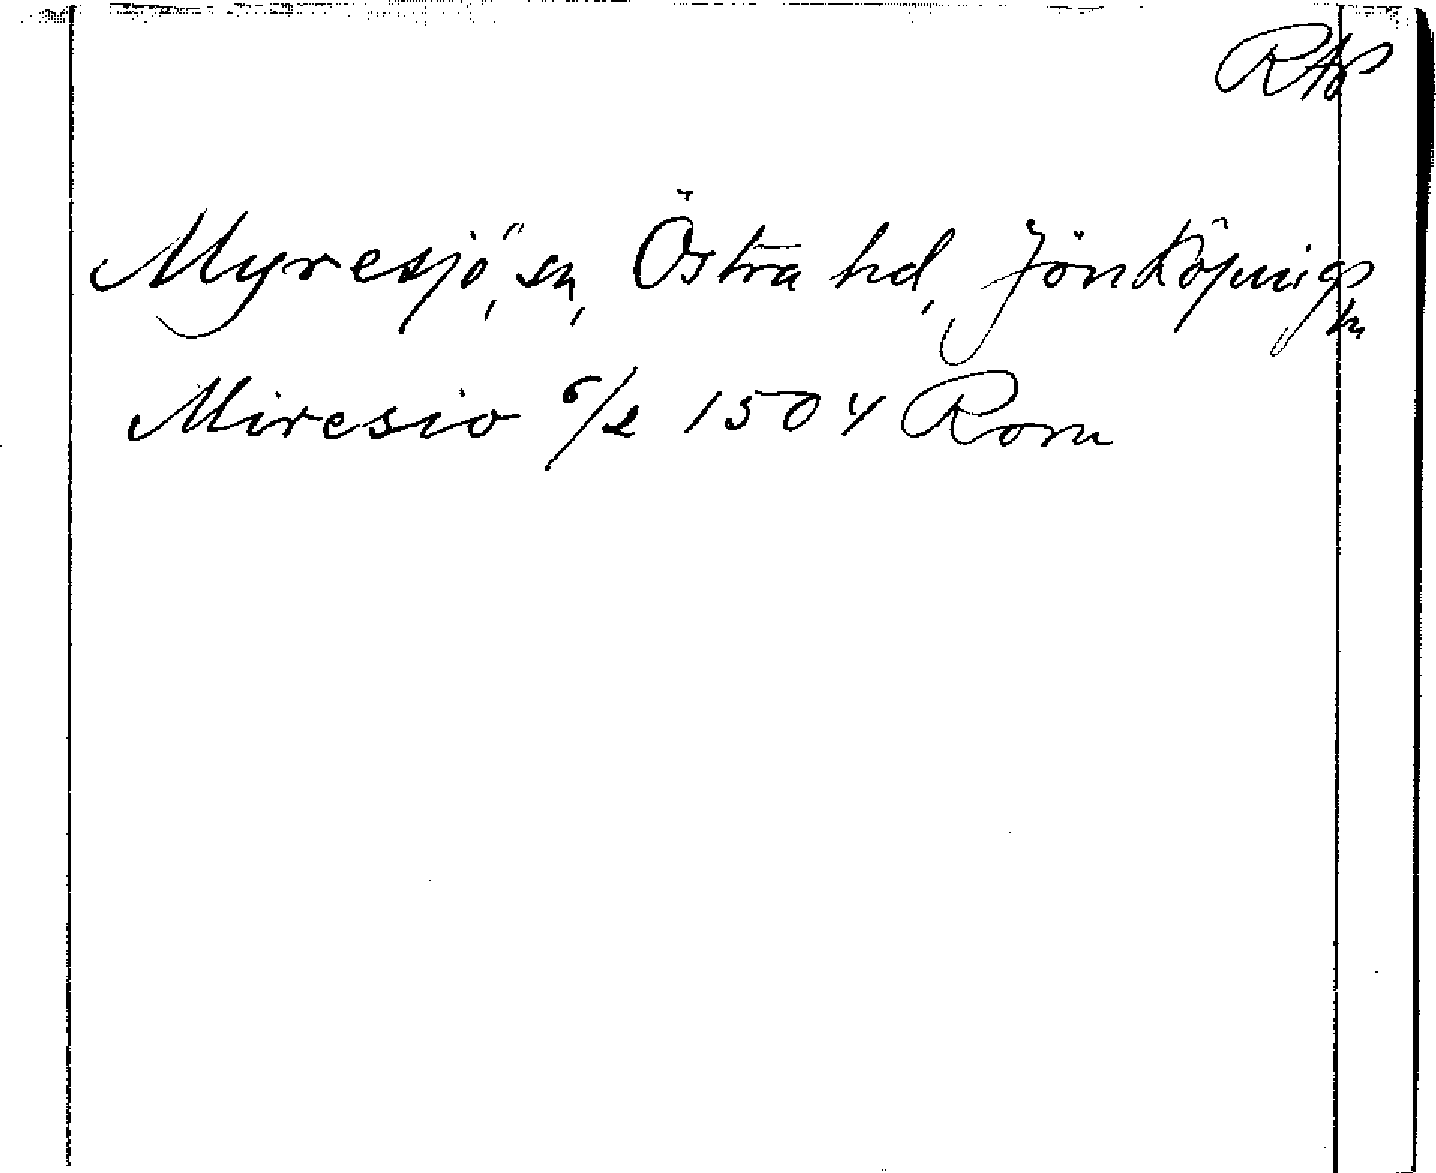 RAP
Myresjö, sn, Östra hd, Jönköpings
ln
Miresio 6/2 1504 Rom